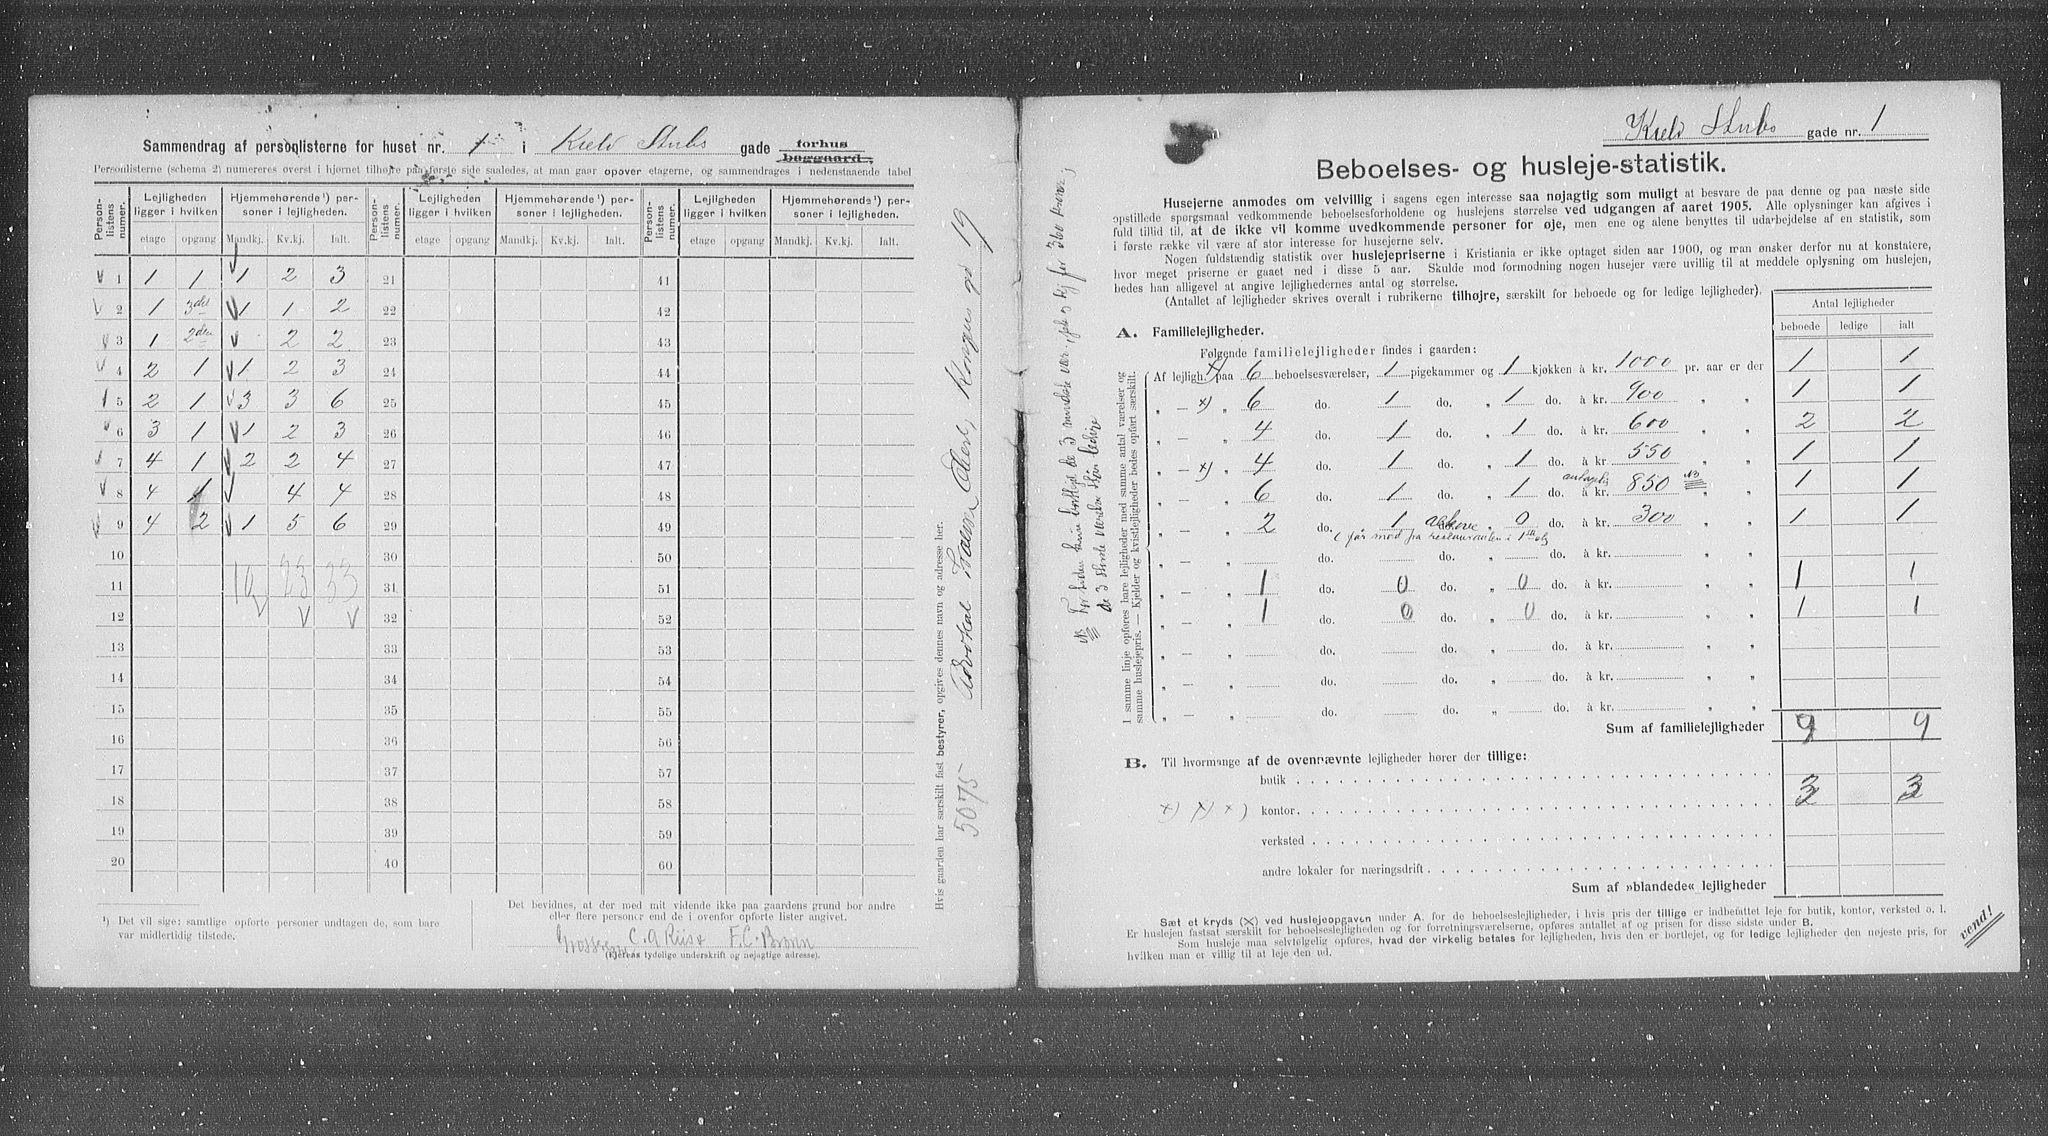 Sammendrag af personlisterne for huset nr. 1 i Kield Stubs gade forhus baggaard.
Personlisterne (schema 2) numereres øverst i hjørnet tilhøire paa første side saaledes, at man gaar opover etagerne, og sammendrages i nedenstaaende tabel
Person-listens numer. Lejligheden ligger i hvilken etage opgang Hjemmehørende¹) personer i lejligheden. Mandkj. Kv.kj. Ialt.
Person-listens numer. Lejligheden ligger i hvilken etage opgang Hjemmehørende¹) personer i lejligheden. Mandkj. Kv.kj. Ialt.
Person-listens numer. Lejligheden ligger i hvilken etage opgang Hjemmehørende¹) personer i lejligheden. Mandkj. Kv.kj. Ialt.
v 1 1 1 v 1 2 3 21 41
v 2 1 3die v 1 1 2 22 42
v 3 1 2den v 2 2 23 43
v 4 2 1 v 1 2 3 24 44
v 5 2 1 v 3 3 6 25 45
v 6 3 1 v 1 2 3 26 46
v 7 4 1 v 2 2 4 27 47
v 8 4 1 v 4 4 28 48
v 9 4 2 v 1 5 6 29 49
10 30 50
11 10 23 33 31 51
12 v v v 32 52
13 33 53
14 34 54
15 35 55
16 36 56
17 37 57
18 38 58
19 39 59
20 40 60
¹) Det vil sige: samtlige opførte personer undtagen de, som bare
var midlertidig tilstede.
Det bevidnes, at der med mit vidende ikke paa gaardens grund bor andre
eller flere personer end de i ovenfor opførte lister angivet.
C. A Riis & F. C. Bronn
(Ejerens tydelige underskrift og nøjagtige adresse).
Hvis gaarden har særskilt fast bestyrer, opgives dennes navn og adresse her.
Advokat Kongens gd 19
5075
Kield Stubs gade nr. 1
Beboelses- og husleje-statistik.
Husejerne anmodes om velvillig i sagens egen interesse saa nøjagtig som muligt at besvare de paa denne og paa næste side
opstillede spørgsmaal vedkommende beboelsesforholdene og huslejens størrelse ved udgangen af aaret 1905. Alle oplysninger kan afgives i
fuld tillid til, at de ikke vil komme uvedkommende personer for øje, men ene og alene benyttes til udarbejdelse af en statistik, som
i første række vil være af stor interesse for husejerne selv.
Nogen fuldstændig statistik over huslejepriserne i Kristiania er ikke optaget siden aar 1900, og man ønsker derfor nu at konstatere,
hvor meget priserne er gaaet ned i disse 5 aar. Skulde mod formodning nogen husejer være uvillig til at meddele oplysning om huslejen,
bedes han alligevel at angive lejlighedernes antal og størrelse.
(Antallet af lejligheder skrives overalt i rubrikerne tilhøjre, særskilt for beboede og for ledige lejligheder).
Antal lejligheder
beboede ledige ialt
A. Familielejligheder.
Følgende familielejligheder findes i gaarden:
Af lejligh. x) paa 6 beboelsesværelser, 1 pigekammer og 1 kjøkken à kr. 1000 pr. aar er der 1 1
„ — x) „ 6 do. 1 do. „ 1 do. à kr. 900 „ „ 1 1
„ — „ 4 do. 1 do. „ 1 do. à kr. 600 „ „ 2 2
„ — x) „ 4 do. 1 do. „ 1 do. à kr. 550 „ „ 1 1
„ — „ 6 do. 1 do. „ 1 do. antagelig à kr. 850 NB „ 1 1
„ — „ 2 do. 1 alkove „ 0 do. à kr. 300 „ „ 1 1
(får mad fra restauranten i 1ste etg
„ — „ do. do. „ do. à kr. „ „
„ — „ 1 do. 0 do. „ 0 do. à kr. „ „ 1 1
„ — „ 1 do. 0 do. „ 0 do. à kr. „ „ 1 1
„ — „ do. do. „ do. à kr. „ „
„ — „ do. do. „ do. à kr. „ „
„ — „ do. do. „ do. à kr. „ „
I samme linje opføres bare lejligheder med samme antal værelser og
samme huslejepris. — Kjelder og kvistlejligheder bedes opført særskilt.
Sum af familielejligheder 9 9
B. Til hvormange af de ovennævnte lejligheder hører der tillige:
butik
x) x) x) kontor 3 3
verksted
andre lokaler for næringsdrift
Sum af »blandede« lejligheder
Sæt et kryds (X) ved huslejeopgaven under A. for de beboelseslejligheder, i hvis pris der tillige er indbefattet leje for butik, kontor, verksted o. l.
Er huslejen fastsat særskilt for beboelseslejligheden og for forretningsværelserne, opføres antallet af og prisen for disse sidste under B.
Som husleje maa selvfølgelig opføres, hvad der virkelig betales for lejligheden, hvis den er bortlejet, og for ledige lejligheder den nøjeste pris, for
hvilken man er villig til at leje den ud.
vend!